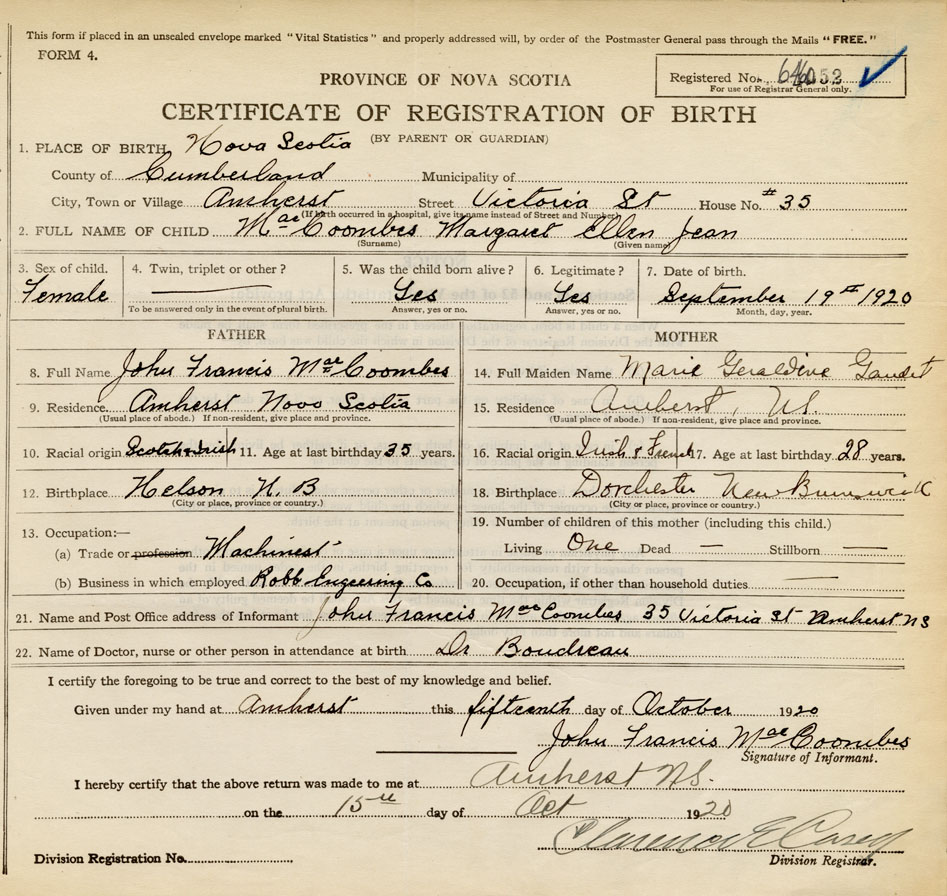 This form if placed in an unsealed envelope marked "Vital Statistics" and properly addressed will, by order of the Postmaster General pass through the Mails "FREE."
FORM 4.
PROVINCE OF NOVA SCOTIA
Registered No.
For use of Registrar General only.
CERTIFICATE OF REGISTRATION OF BIRTH
(BY PARENT OR GUARDIAN)
1. PLACE OF BIRTH Nova Scotia
County of Cumberland Municipality of
City, Town or Village Amherst Street Victoria St House No. #35
(If birth occurred in a hospital, give its name instead of Street and Number)
2. FULL NAME OF CHILD MacCoombes Margaret Ellen Jean
(Surname) (Given name)
3. Sex of child. 4. Twin, triplet or other? 5. Was the child born alive? 6. Legitimate? 7. Date of birth.
Female Yes Yes September 19th 1920
To be answered only in the event of plural birth. Answer, yes or no. Answer, yes or no. Month, day, year.
FATHER
8. Full Name John Francis MacCoombes
9. Residence Amherst Nova Scotia
(Usual place of abode.) If non-resident, give place and province.
10. Racial origin Scotch & Irish 11. Age at last birthday 35 years.
12. Birthplace Nelson N. B
(City or place, province or country.)
13. Occupation:—
(a) Trade or profession Machinest
(b) Business in which employed Robb Engeering Co
MOTHER
14. Full Maiden Name Marie Geraldine Gaudet
15. Residence Amherst, NS.
(Usual place of abode.) If non-resident, give place and province.
16. Racial origin Irish & French 17. Age at last birthday 28 years.
18. Birthplace Dorchester New Brunswick
(City or place, province or country.)
19. Number of children of this mother (including this child.)
Living One Dead — Stillborn —
20. Occupation, if other than household duties —
21. Name and Post Office address of Informant John Francis MacCoombes 35 Victoria St Amherst NS
22. Name of Doctor, nurse or other person in attendance at birth Dr Boudreau
I certify the foregoing to be true and correct to the best of my knowledge and belief.
Given under my hand at Amherst this fifteenth day of October 1920
John Francis MacCoombes
Signature of Informant.
I hereby certify that the above return was made to me at Amherst NS.
on the 15th day of Oct 1920
Clarence E Casey
Division Registration No. Division Registrar.